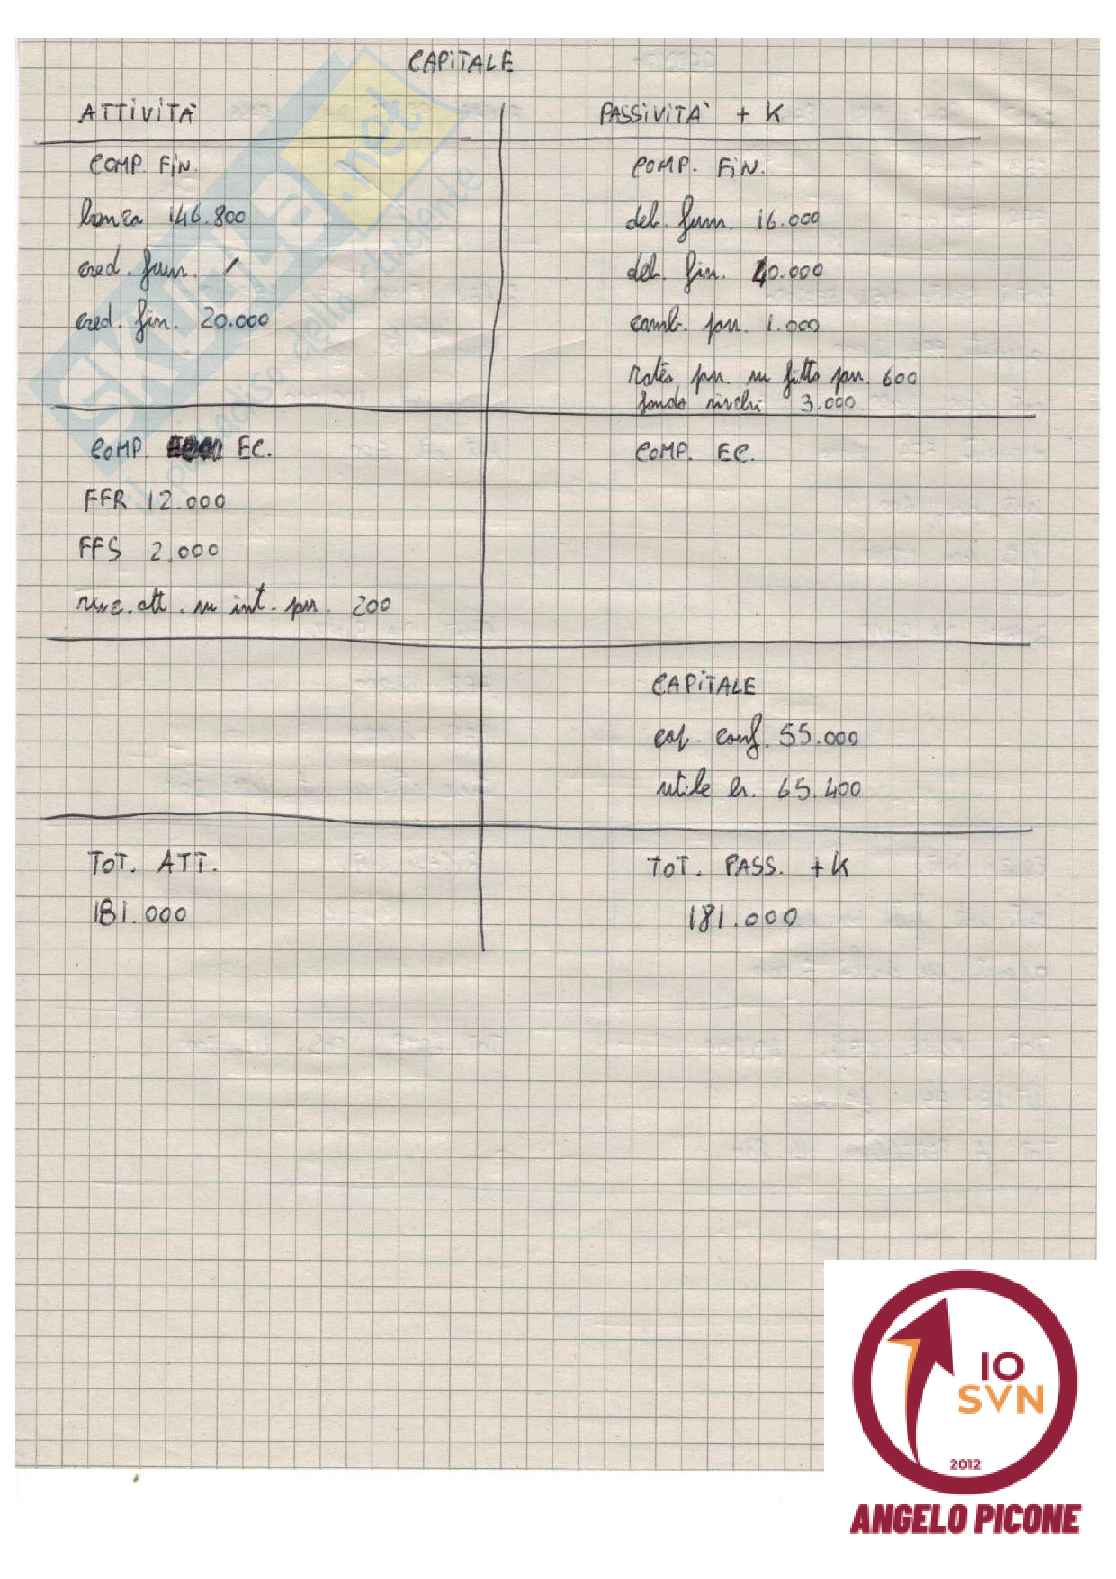 CAPITALE
ATTIVITÀ
COMP. FIN.
banca 146.800
cred. forn. /
cred. fin. 20.000
COMP. EC.
FFR 12.000
FFS 2.000
risc. att. su int. pas. 200
TOT. ATT.
181.000
PASSIVITÀ + K
COMP. FIN.
deb. forn. 16.000
deb. fin. 40.000
camb. pas. 1.000
rateo pas. su fitto pas. 600
fondo rischi 3.000
COMP. EC.
CAPITALE
cap. conf. 55.000
utile es. 65.400
TOT. PASS. + K
181.000
SKUOLA.net
dello studente
IO
SVN
2012
ANGELO PICONE